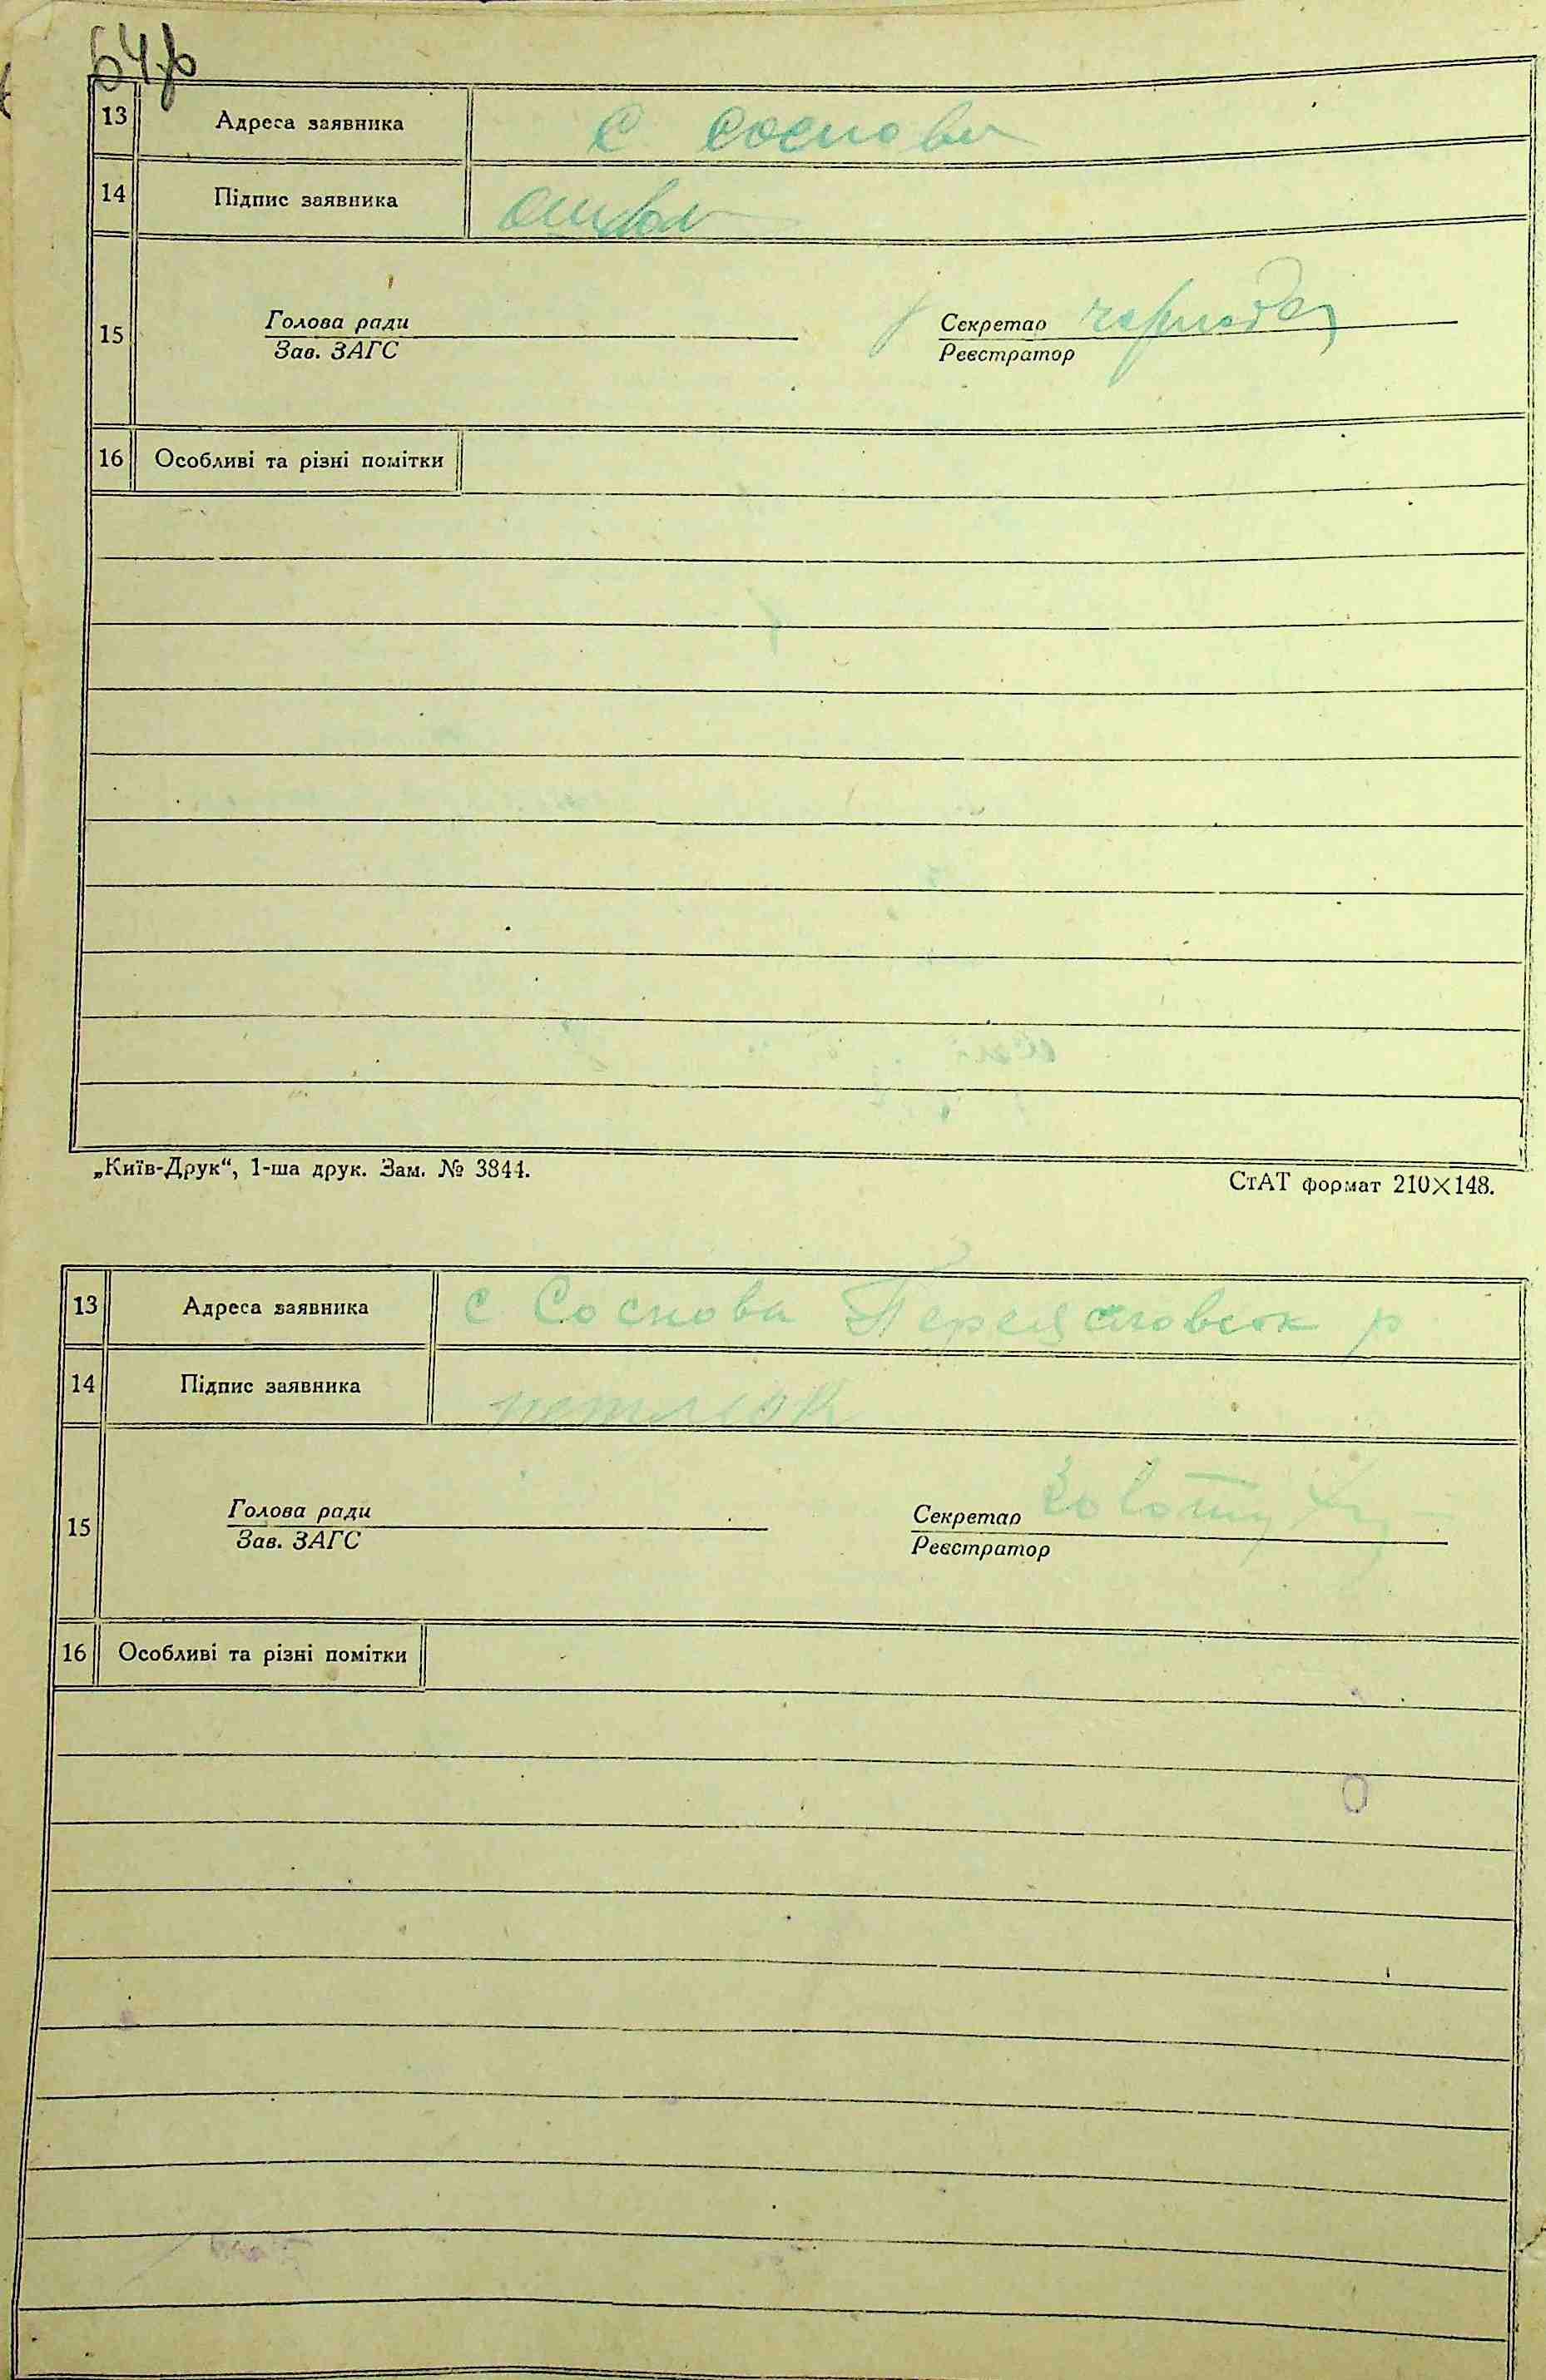 13 Адреса заявника с соснова
14 Підпис заявника
15 Голова ради Секретар
Зав. ЗАГС Реєстратор
16 Особливі та різні помітки
„Київ-Друк“, 1-ша друк. Зам. № 3844. СтАТ формат 210×148.
13 Адреса заявника с Соснова Переяславськ р
14 Підпис заявника
15 Голова ради Секретар
Зав. ЗАГС Реєстратор
16 Особливі та різні помітки